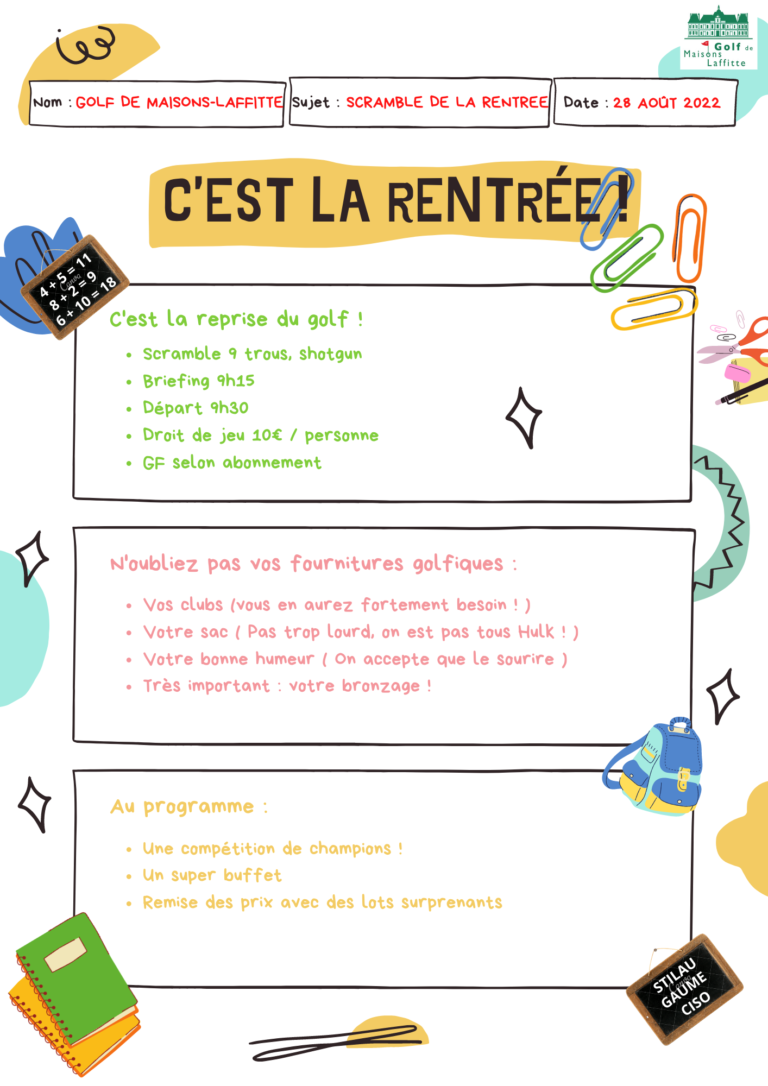 Golf de
Maisons
Laffitte
Nom : GOLF DE MAISONS-LAFFITTE
Sujet : SCRAMBLE DE LA RENTREE
Date : 28 AOÛT 2022
C'EST LA RENTRÉE !
4 + 5 = 11
8 + 2 = 9
6 + 10 = 18
C'est la reprise du golf !
• Scramble 9 trous, shotgun
• Briefing 9h15
• Départ 9h30
• Droit de jeu 10€ / personne
• GF selon abonnement
N'oubliez pas vos fournitures golfiques :
• Vos clubs (vous en aurez fortement besoin ! )
• Votre sac ( Pas trop lourd, on est pas tous Hulk ! )
• Votre bonne humeur ( On accepte que le sourire )
• Très important : votre bronzage !
Au programme :
• Une compétition de champions !
• Un super buffet
• Remise des prix avec des lots surprenants
STILAU
GAUME
CISO